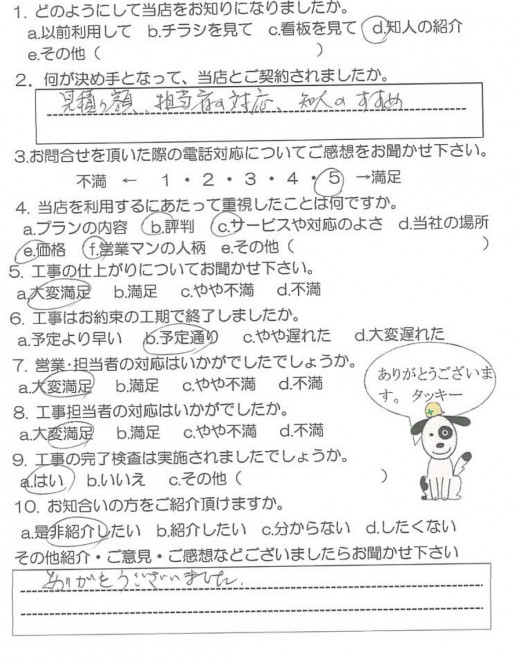 1. どのようにして当店をお知りになりましたか。
a.以前利用して b.チラシを見て c.看板を見て d.知人の紹介
e.その他（ ）
2. 何が決め手となって、当店とご契約されましたか。
見積り額、担当者の対応、知人のすすめ
3.お問合せを頂いた際の電話対応についてご感想をお聞かせ下さい。
不満 ← 1・2・3・4・5 →満足
4. 当店を利用するにあたって重視したことは何ですか。
a.プランの内容 b.評判 c.サービスや対応のよさ d.当社の場所
e.価格 f.営業マンの人柄 e.その他（ ）
5. 工事の仕上がりについてお聞かせ下さい。
a.大変満足 b.満足 c.やや不満 d.不満
6. 工事はお約束の工期で終了しましたか。
a.予定より早い b.予定通り c.やや遅れた d.大変遅れた
7. 営業・担当者の対応はいかがでしたでしょうか。
a.大変満足 b.満足 c.やや不満 d.不満
8. 工事担当者の対応はいかがでしたか。
a.大変満足 b.満足 c.やや不満 d.不満
ありがとうございま
す。 タッキー
9. 工事の完了検査は実施されましたでしょうか。
a.はい b.いいえ c.その他（ ）
10. お知合いの方をご紹介頂けますか。
a.是非紹介したい b.紹介したい c.分からない d.したくない
その他紹介・ご意見・ご感想などございましたらお聞かせ下さい
ありがとうございました。